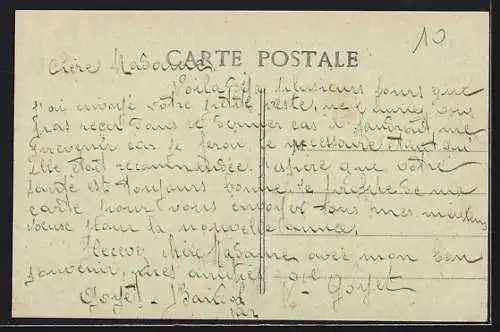 10
CARTE POSTALE
Chère Madame
Voila déja plusieurs jours que
j'ai envoyé votre petite veste, ne l'auriez vous
pas reçu dans ce dernier cas il faudrait me
prevenir car je ferai le necessaire etant qu'
elle etait recommandée. J'espère que votre
santé est toujours bonne. Je profite de ma
carte pour vous envoyer tous mes meilleurs
voeux pour la nouvelle année.
Recevez chère Madame avec mon bon
souvenir, mes amitiés
Goyet
Goyet